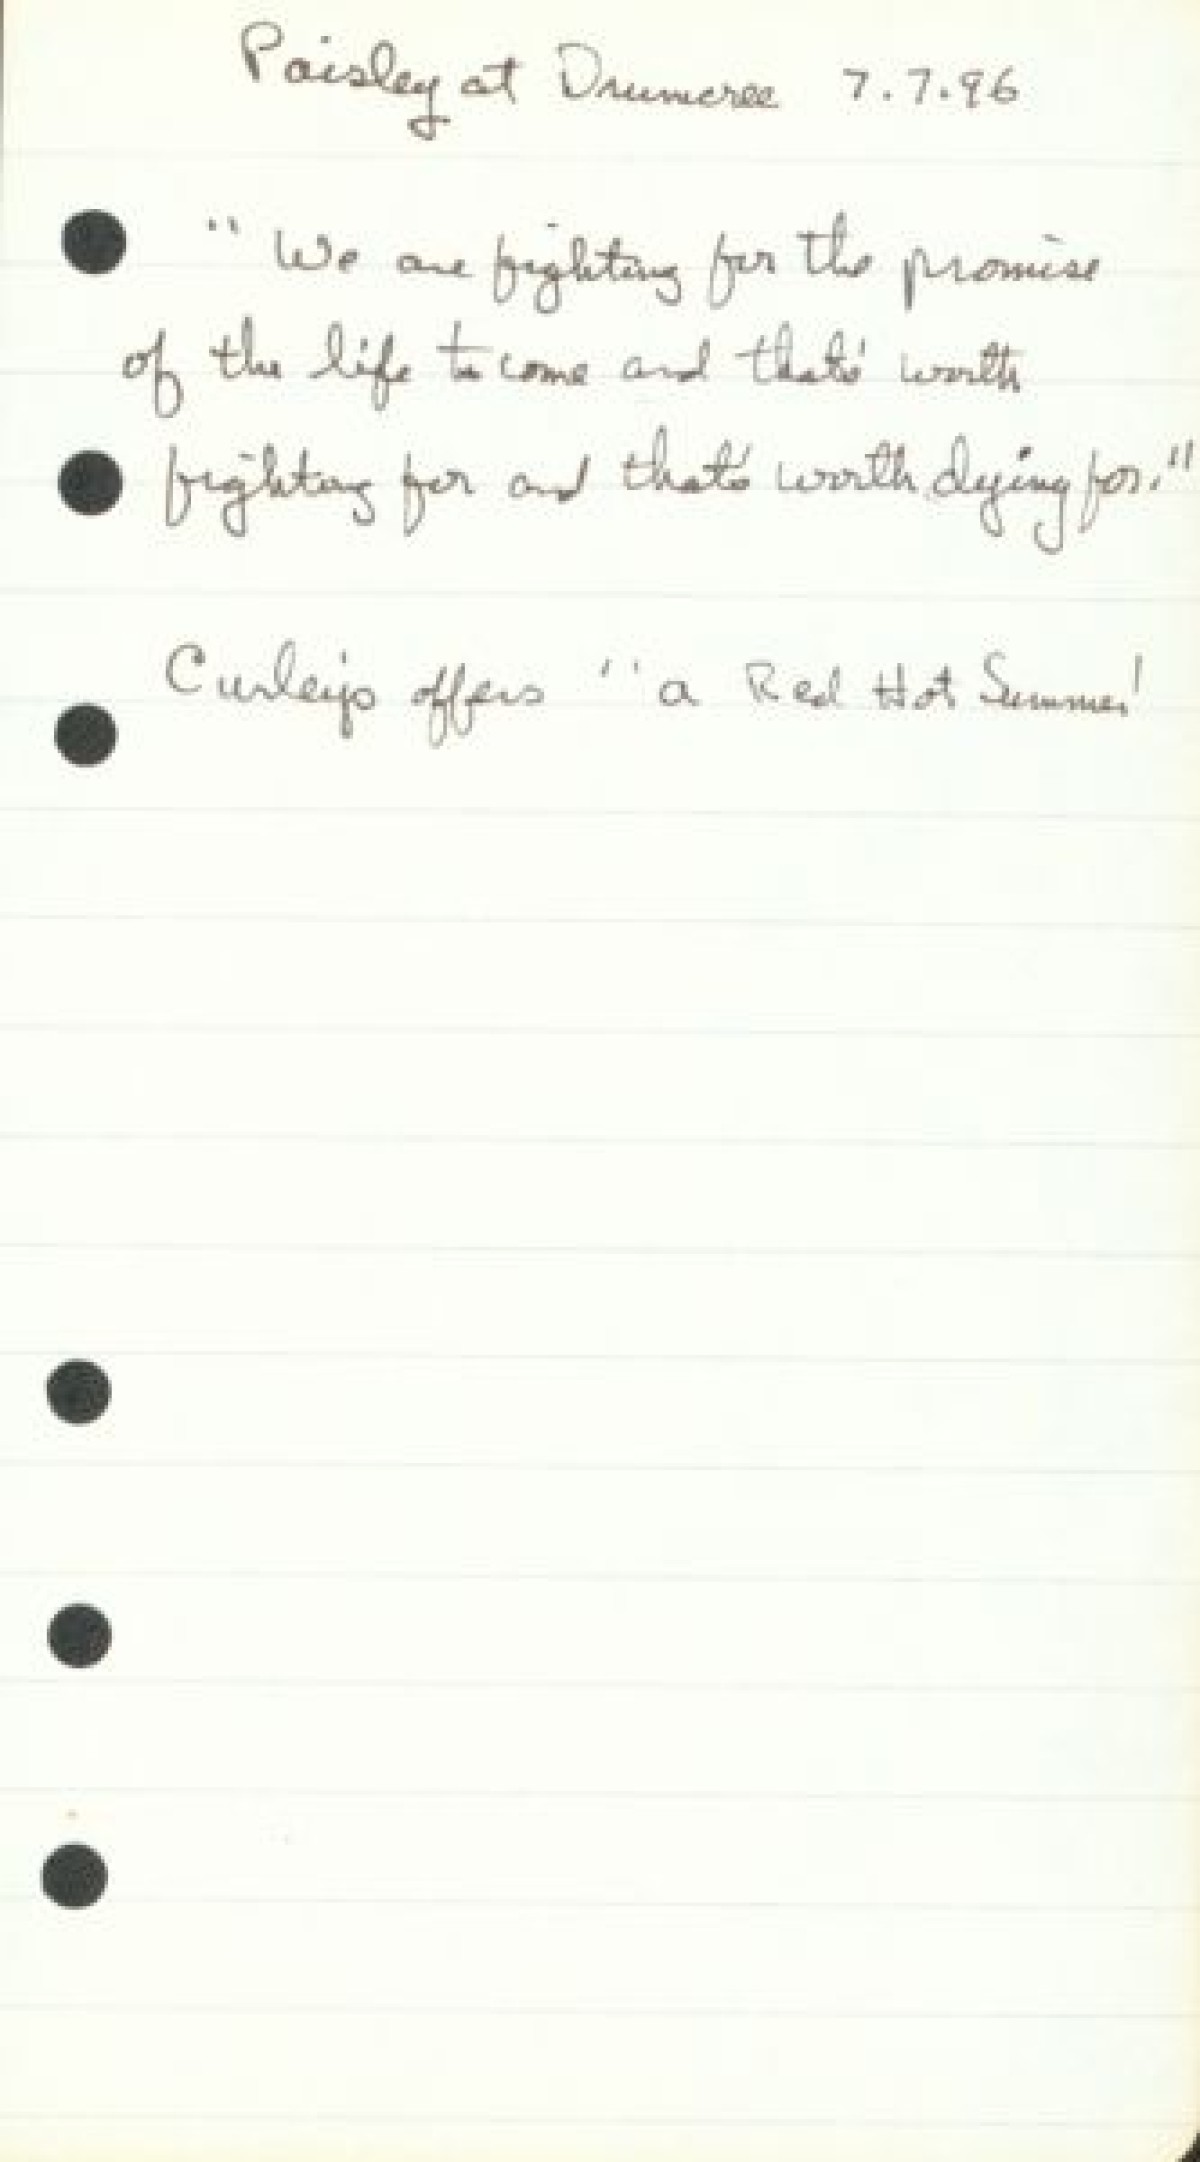 Paisley at Drumcree 7.7.96
"We are fighting for the promise
of the life to come and that's worth
fighting for and that's worth dying for."
Curley's offers "a Red Hot Summer!